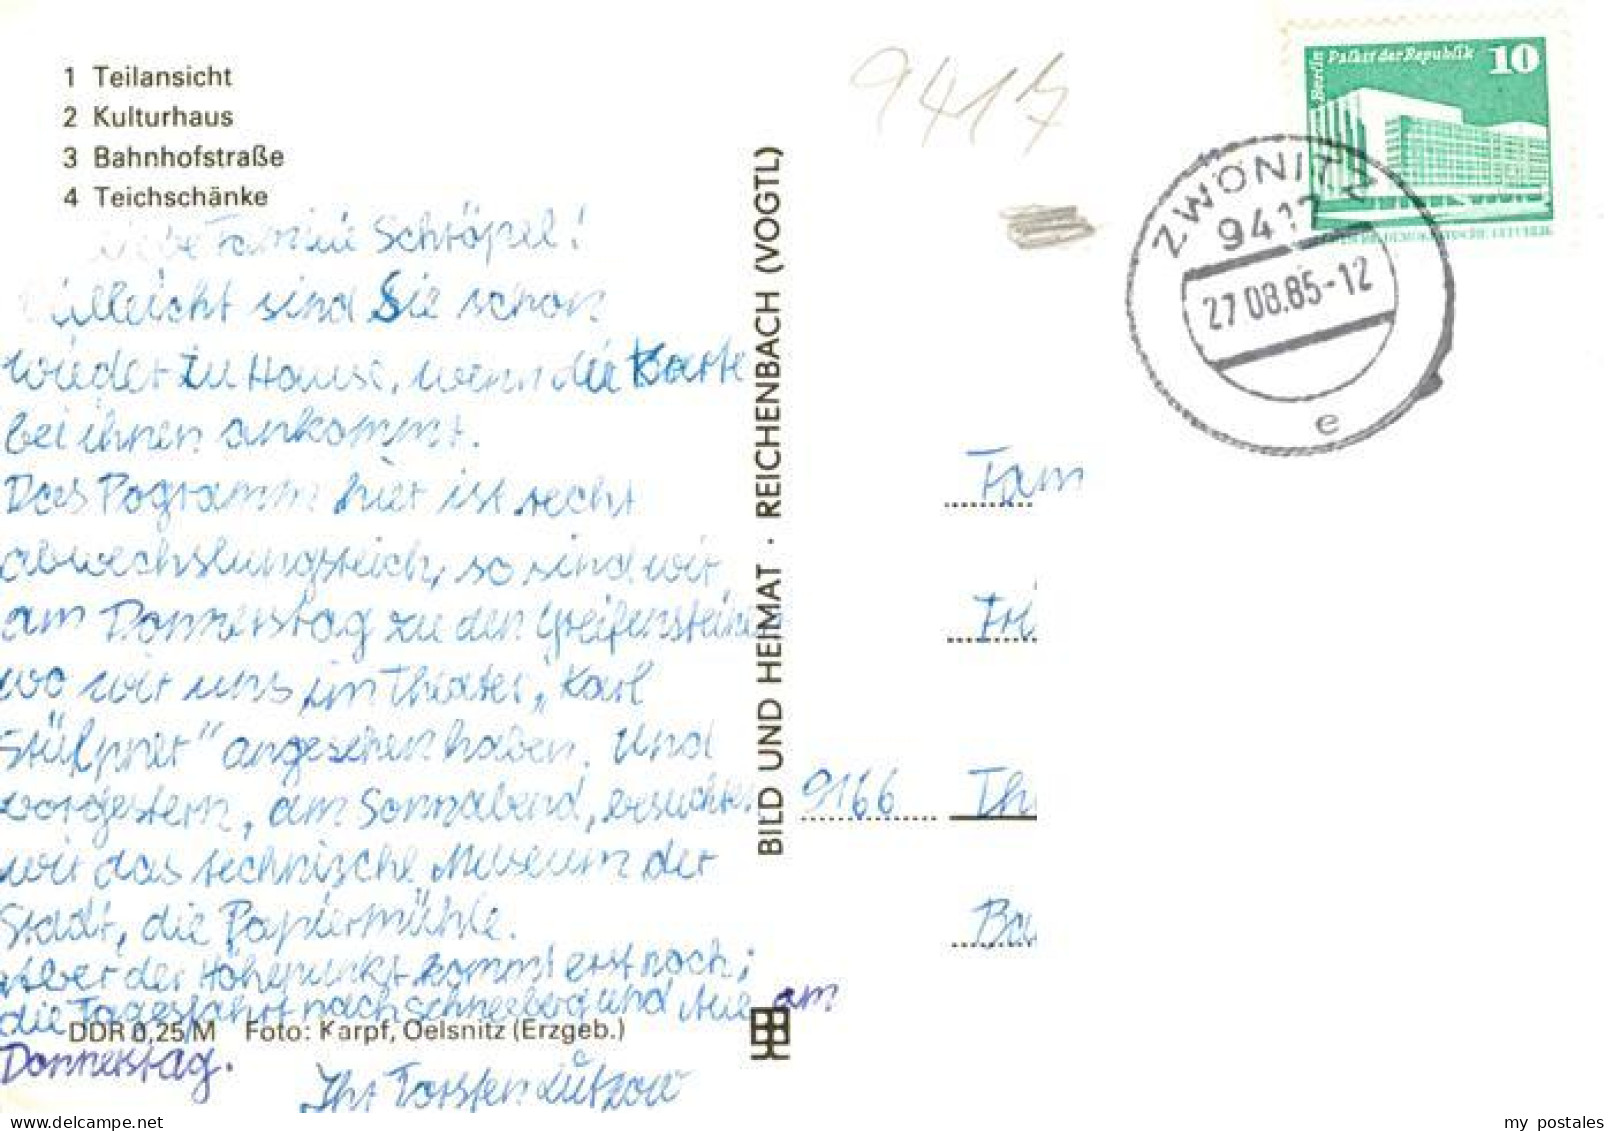 1 Teilansicht
2 Kulturhaus
3 Bahnhofstraße
4 Teichschänke
Liebe Familie Schröpel!
Vielleicht sind Sie schon
wieder zu Hause, wenn die Karte
bei ihnen ankommt.
Das Pogramm hier ist recht
abwechslungsreich, so sind wir
am Donnerstag zu den Greifensteine
wo wir uns im Theater "Karl
Stülpner" angesehen haben. Und
vorgestern, am Sonnabend, besuchten
wir das technische Museum der
Stadt, die Papiermühle.
Aber der Höhepunkt kommt erst noch;
die Tagesfahrt nach schneeberg und Aue am
Donnerstag.
Ihr Torsten Lützow
DDR 0,25 M Foto: Karpf, Oelsnitz (Erzgeb.)
BILD UND HEIMAT · REICHENBACH (VOGTL)
9417
Berlin Palast der Republik 10
ZWÖNITZ
941
27.08.85-12
e
Fam
Fri
9166 Th
Ba
www.delcampe.net
my_postales